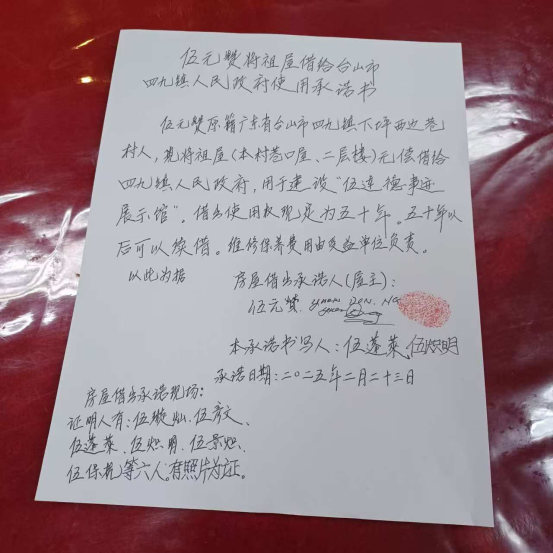 伍元赞将祖屋借给台山市
四九镇人民政府使用承诺书
伍元赞原籍广东省台山市四九镇下坪西边巷
村人，现将祖屋(本村巷口屋、二层楼)无偿借给
四九镇人民政府，用于建设“伍连德事迹
展示馆”。借出使用权规定为五十年。五十年以
后可以续借。维修保养费用由受益单位负责。
以此为据
房屋借出承诺人(屋主)：
伍元赞
本承诺书写人：伍蓬莱、伍炽明
承诺日期：二〇二五年二月二十三日
房屋借出承诺现场：
证明人有：伍璇灿、伍彦文、
伍蓬莱、伍炽明、伍景炽、
伍保机等六人。有照片为证。